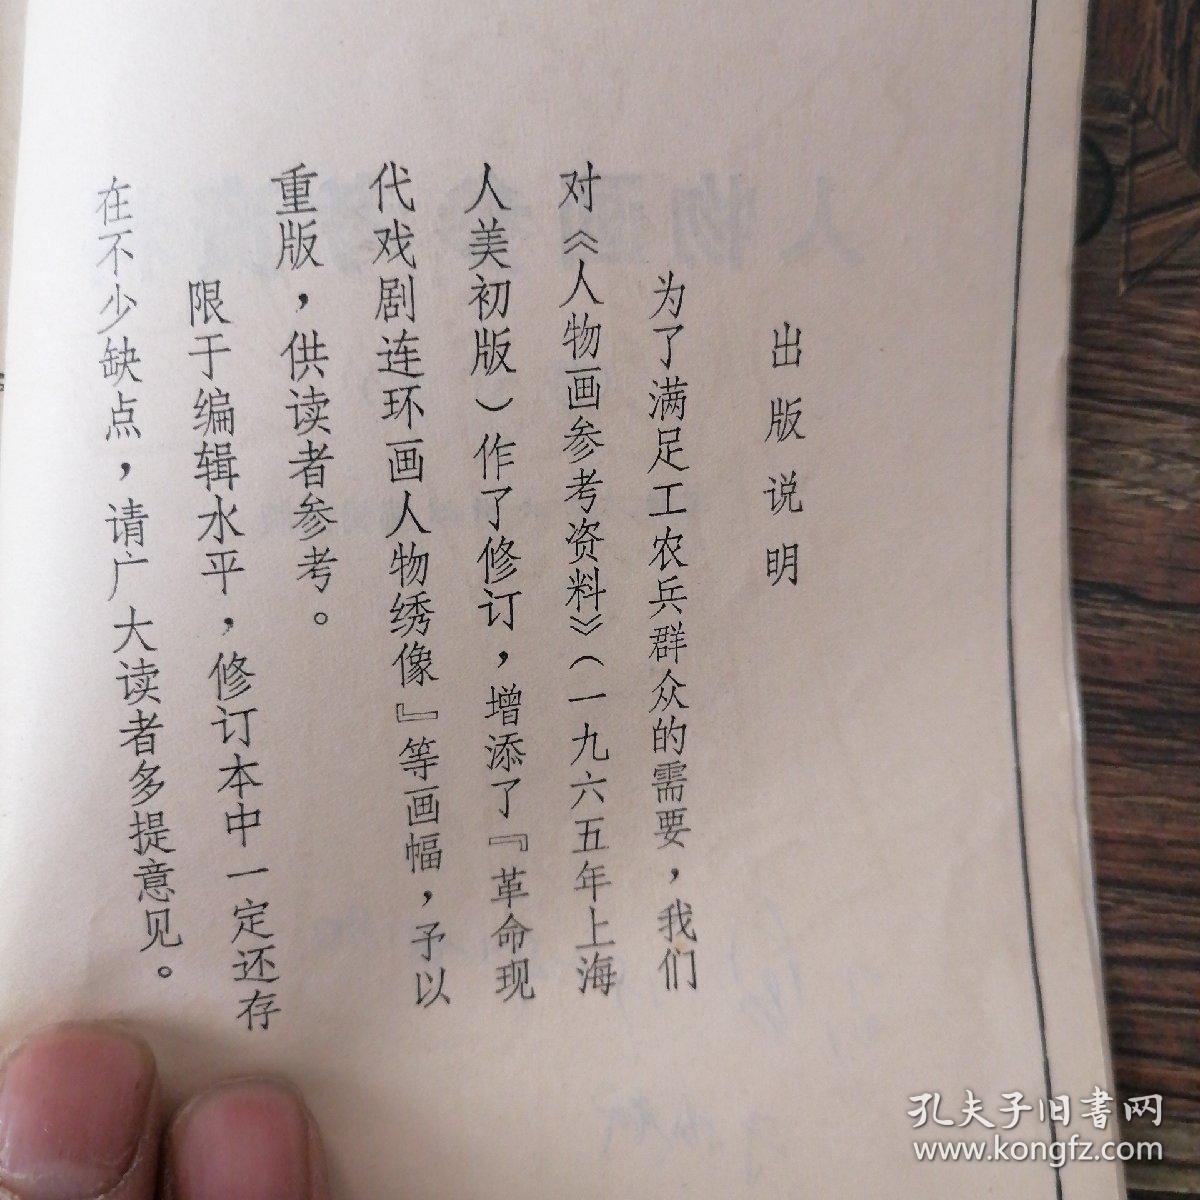 出版说明
为了满足工农兵群众的需要，我们
对《人物画参考资料》（一九六五年上海
人美初版）作了修订，增添了『革命现
代戏剧连环画人物绣像』等画幅，予以
重版，供读者参考。
限于编辑水平，修订本中一定还存
在不少缺点，请广大读者多提意见。
孔夫子旧书网
www.kongfz.com